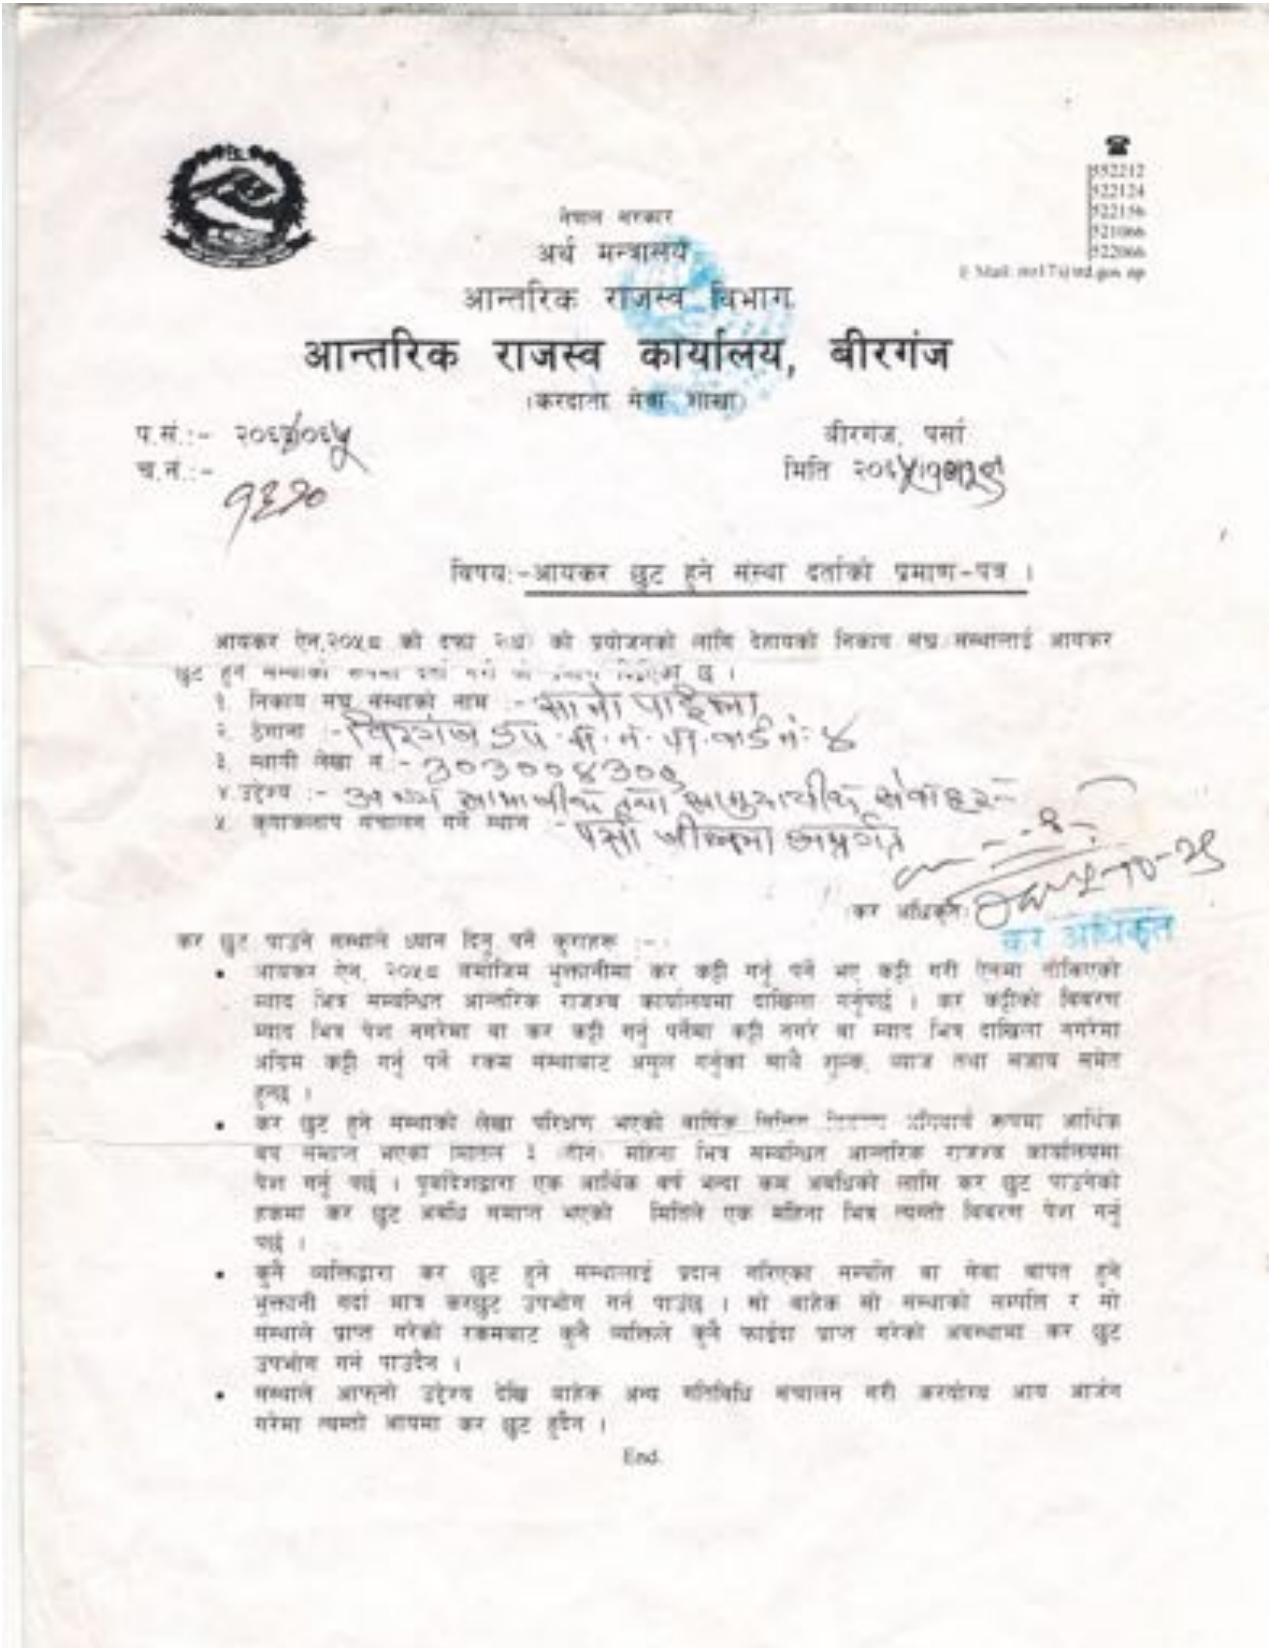 552212
522124
522156
521066
522066
नेपाल सरकार
अर्थ मन्त्रालय
आन्तरिक राजस्व विभाग
आन्तरिक राजस्व कार्यालय, बीरगंज
(करदाता सेवा शाखा)
प.सं.:- २०६५/०६५
बीरगंज, पर्सा
च.नं.:-
मिति २०६५।१०।२९
विषय:-आयकर छुट हुने संस्था दर्ताको प्रमाण-पत्र ।
आयकर ऐन,२०५८ को दफा को प्रयोजनको लागि देहायको निकाय संघ संस्थालाई आयकर
छुट हुने संस्थाको रुपमा दर्ता गरी यो दिईएको छ ।
१. निकाय संघ संस्थाको नाम :- सानो पाईला
२. ठेगाना :- विरगंज उप.म.न.पा. वार्ड नं. ४
३. स्थायी लेखा नं. :- ३०३००४३०९
४.उद्देश्य :- अन्य सामाजीक तथा सामुदायीक सेवाहरु
५. क्रयाकलाप संचालन गर्ने स्थान :- पर्सा जील्ला
(कर अधिकृत)
कर अधिकृत
कर छुट पाउने संस्थाले ध्यान दिनु पर्ने कुराहरु :-
• आयकर ऐन, २०५८ बमोजिम भुक्तानीमा कर कट्टी गर्नु पर्ने भए कट्टी गरी ऐनमा तोकिएको
म्याद भित्र सम्बन्धित आन्तरिक राजश्व कार्यालयमा दाखिला गर्नुपर्छ । कर कट्टीको बिबरण
म्याद भित्र पेश नगरेमा वा कर कट्टी गर्नु पर्नेमा कट्टी नगरे वा म्याद भित्र दाखिला नगरेमा
अग्रिम कट्टी गर्नु पर्ने रकम संस्थाबाट असुल गर्नुका साथै शुल्क, ब्याज तथा सजाय समेत
हुनेछ ।
• कर छुट हुने संस्थाको लेखा परिक्षण भएको बार्षिक अनिवार्य रूपमा आर्थिक
बर्ष समाप्त भएको मितिले ३ (तीन) महिना भित्र सम्बन्धित आन्तरिक राजश्व कार्यालयमा
पेश गर्नु पर्छ । पूर्वादेशद्वारा एक आर्थिक बर्ष भन्दा कम अबधिको लागि कर छुट पाउनेको
हकमा कर छुट अबधि समाप्त भएको मितिले एक महिना भित्र त्यस्तो बिबरण पेश गर्नु
पर्छ ।
• कुनै व्यक्तिद्वारा कर छुट हुने संस्थालाई प्रदान गरिएका सम्पति वा सेवा बापत हुने
भुक्तानी गर्दा मात्र करछुट उपभोग गर्न पाउंछ । सो बाहेक सो संस्थाको सम्पति र सो
संस्थाले प्राप्त गरेको रकमबाट कुनै व्यक्तिले कुनै फाईदा प्राप्त गरेको अवस्थामा कर छुट
उपभोग गर्न पाउदैन ।
• संस्थाले आफ्नो उद्देश्य देखि बाहेक अन्य गतिविधि संचालन गरी करयोग्य आय आर्जन
गरेमा त्यस्तो आयमा कर छुट हुदैन ।
End.